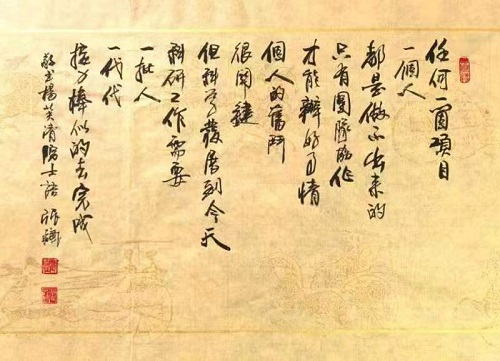 任何一箇項目
一個人
都是做不出来的
只有團隊協作
才能辦好事情
個人的奮鬥
很関鍵
但科學發展到今天
科研工作需要
一批人
一代代
接力棒似的去完成
敬書楊芙清院士語